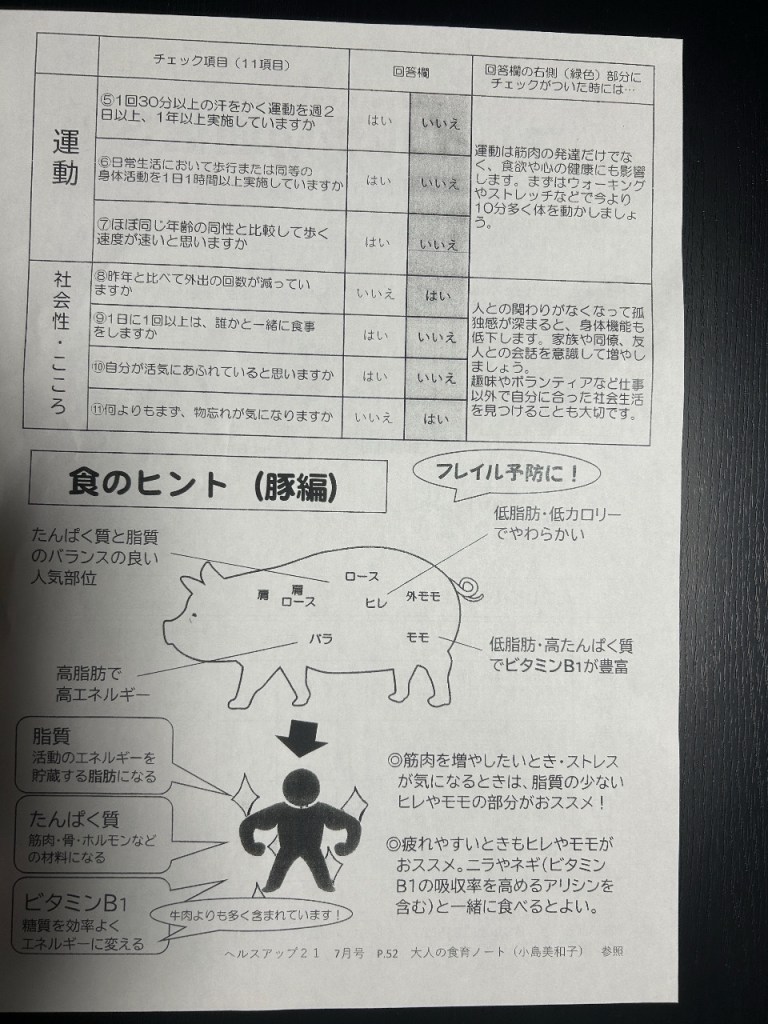 チェック項目（11項目）
回答欄
回答欄の右側（緑色）部分に
チェックがついた時には…
運動
⑤1回30分以上の汗をかく運動を週2
日以上、1年以上実施していますか
はい
いいえ
⑥日常生活において歩行または同等の
身体活動を1日1時間以上実施していますか
はい
いいえ
⑦ほぼ同じ年齢の同性と比較して歩く
速度が速いと思いますか
はい
いいえ
運動は筋肉の発達だけでな
く、食欲や心の健康にも影響
します。まずはウォーキング
やストレッチなどで今より
10分多く体を動かしましょ
う。
社会性・こころ
⑧昨年と比べて外出の回数が減ってい
ますか
いいえ
はい
⑨1日に1回以上は、誰かと一緒に食事
をしますか
はい
いいえ
⑩自分が活気にあふれていると思いますか
はい
いいえ
⑪何よりもまず、物忘れが気になりますか
いいえ
はい
人との関わりがなくなって孤
独感が深まると、身体機能も
低下します。家族や同僚、友
人との会話を意識して増やし
ましょう。
趣味やボランティアなど仕事
以外で自分に合った社会生活
を見つけることも大切です。
食のヒント（豚編）
フレイル予防に！
たんぱく質と脂質
のバランスの良い
人気部位
低脂肪・低カロリー
でやわらかい
肩
肩
ロース
ロース
ヒレ
外モモ
バラ
モモ
高脂肪で
高エネルギー
低脂肪・高たんぱく質
でビタミンB1が豊富
脂質
活動のエネルギーを
貯蔵する脂肪になる
たんぱく質
筋肉・骨・ホルモンなど
の材料になる
ビタミンB1
糖質を効率よく
エネルギーに変える
牛肉よりも多く含まれています！
◎筋肉を増やしたいとき・ストレス
が気になるときは、脂質の少ない
ヒレやモモの部分がおススメ！
◎疲れやすいときもヒレやモモが
おススメ。ニラやネギ（ビタミン
B1の吸収率を高めるアリシンを
含む）と一緒に食べるとよい。
ヘルスアップ21　7月号　P.52　大人の食育ノート（小島美和子）　参照